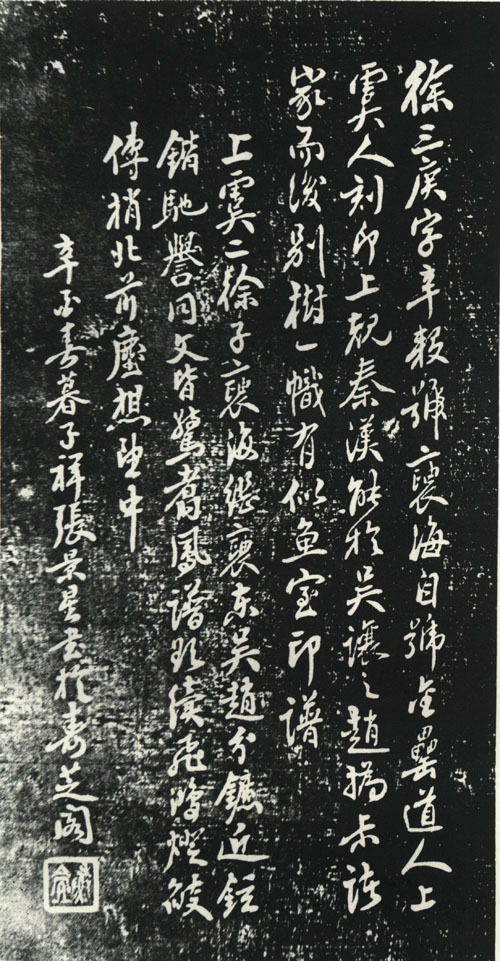 徐三庚字辛穀號袖海自號金罍道人上
虞人刻印上規秦漢能於吳讓之趙撝叔諸
家而後別樹一幟有似魚室印譜
上虞二徐子袖海繼袖東吳趙分鑣近鈺
錯馳譽同文皆驚翥鳳譜
傳梢北前塵想望中
辛酉春暮子祥張景星書於壽芝閣